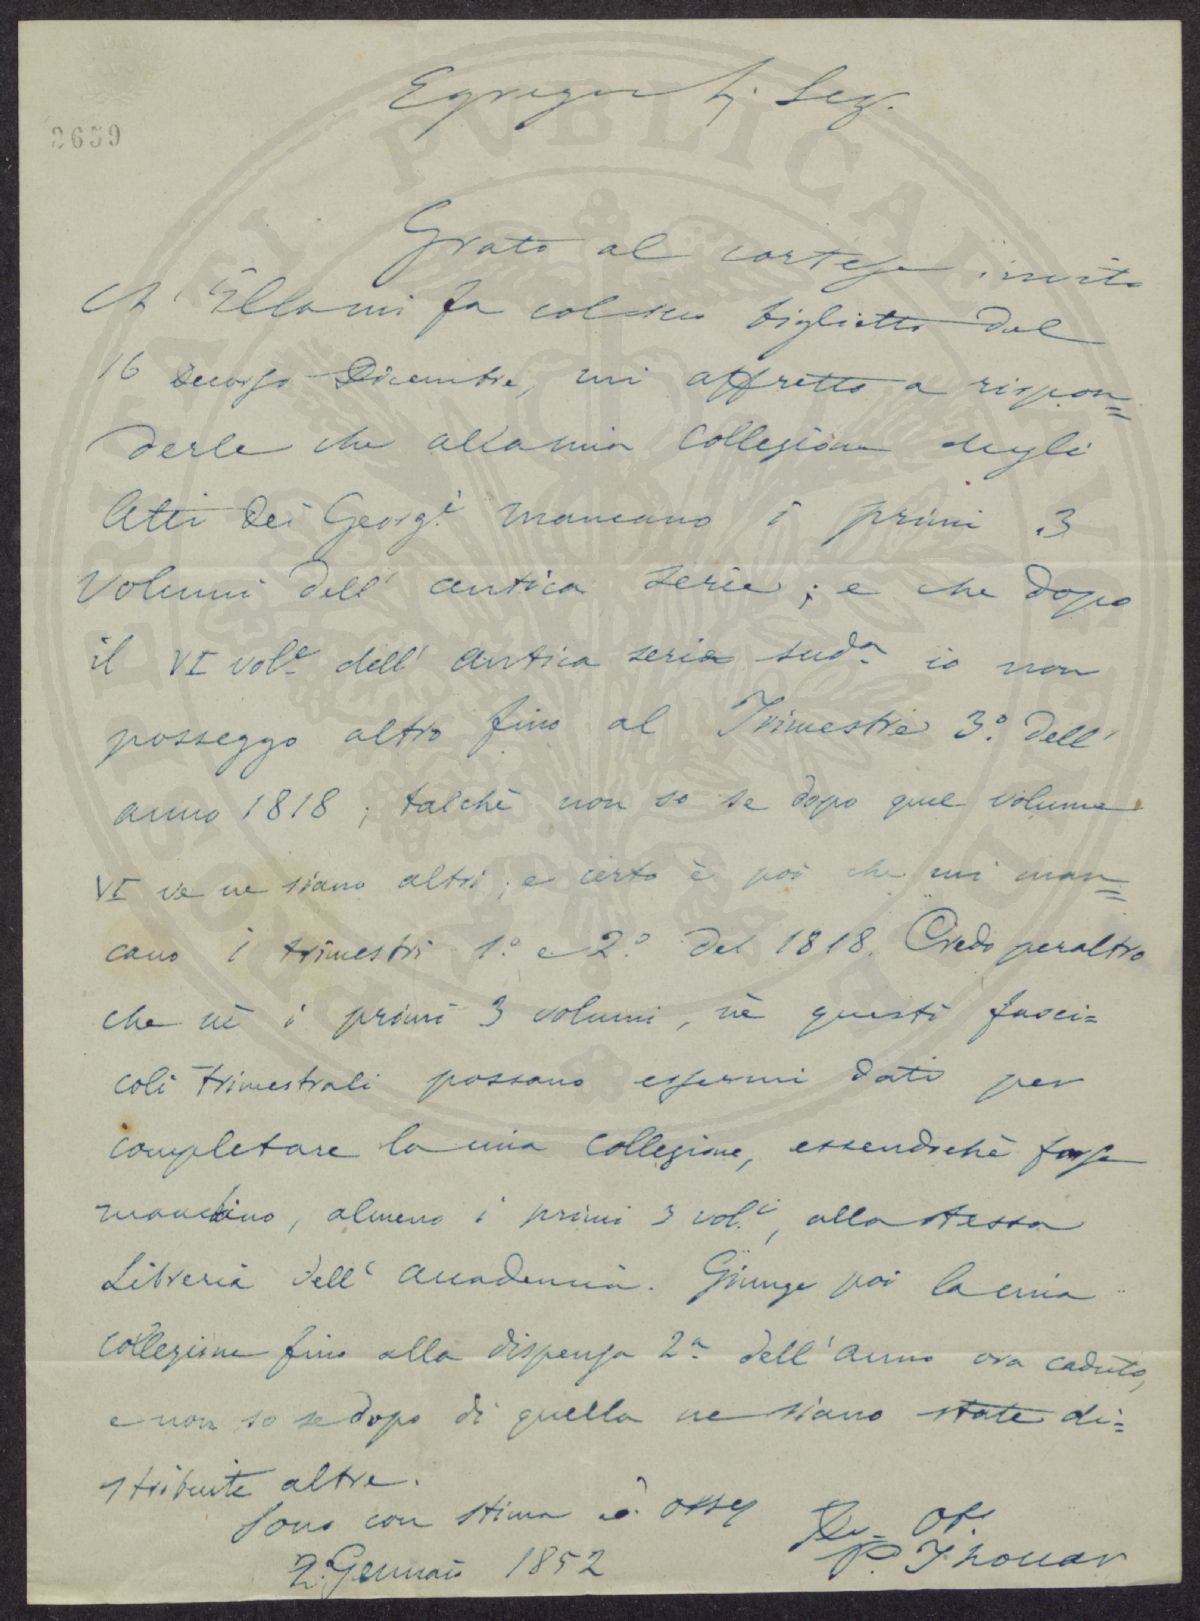 2659
Egregio Sig. Seg.
Grato al cortese invito
ch' Ella mi fa col suo biglietto del
16 decorso Dicembre, mi affretto a rispon=
derle che alla mia Collezione degli
Atti dei Georg.i mancano i primi 3
volumi dell' antica serie; e che dopo
il VI vol.e dell' antica serie sud.a io non
posseggo altro fino al Trimestre 3.o dell'
anno 1818; talchè non so se dopo quel volume
VI ve ne siano altri; e certo è poi che mi man=
cano i trimestri 1.o e 2.o del 1818. Credo peraltro
che nè i primi 3 volumi, nè questi fasci=
coli trimestrali possano essermi dati per
completare la mia Collezione, essendochè forse
manchino, almeno i primi 3 vol.i, alla stessa
Libreria dell' Accademia. Giunge poi la mia
collezione fino alla dispensa 2.a dell' anno ora caduto,
e non so se dopo di quella ne siano state di=
stribuite altre.
Sono con stima e osseq
2. Gennaio 1852
P. Thouar